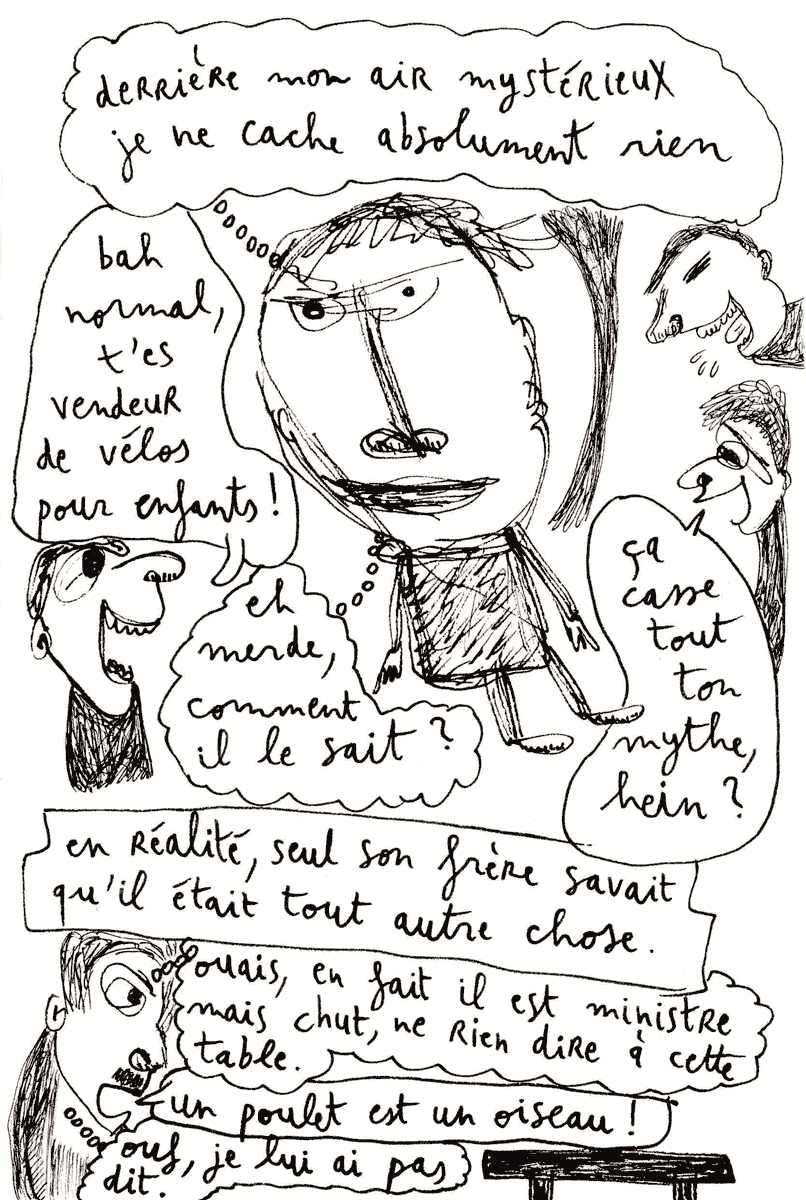 derrière mon air mystérieux
je ne cache absolument rien
bah
normal,
t'es
vendeur
de vélos
pour enfants !
eh
merde,
comment
il le sait ?
ça
casse
tout
ton
mythe,
hein ?
en réalité, seul son frère savait
qu'il était tout autre chose.
ouais, en fait il est ministre
mais chut, ne rien dire à cette
table.
un poulet est un oiseau !
ouf, je lui ai pas
dit.